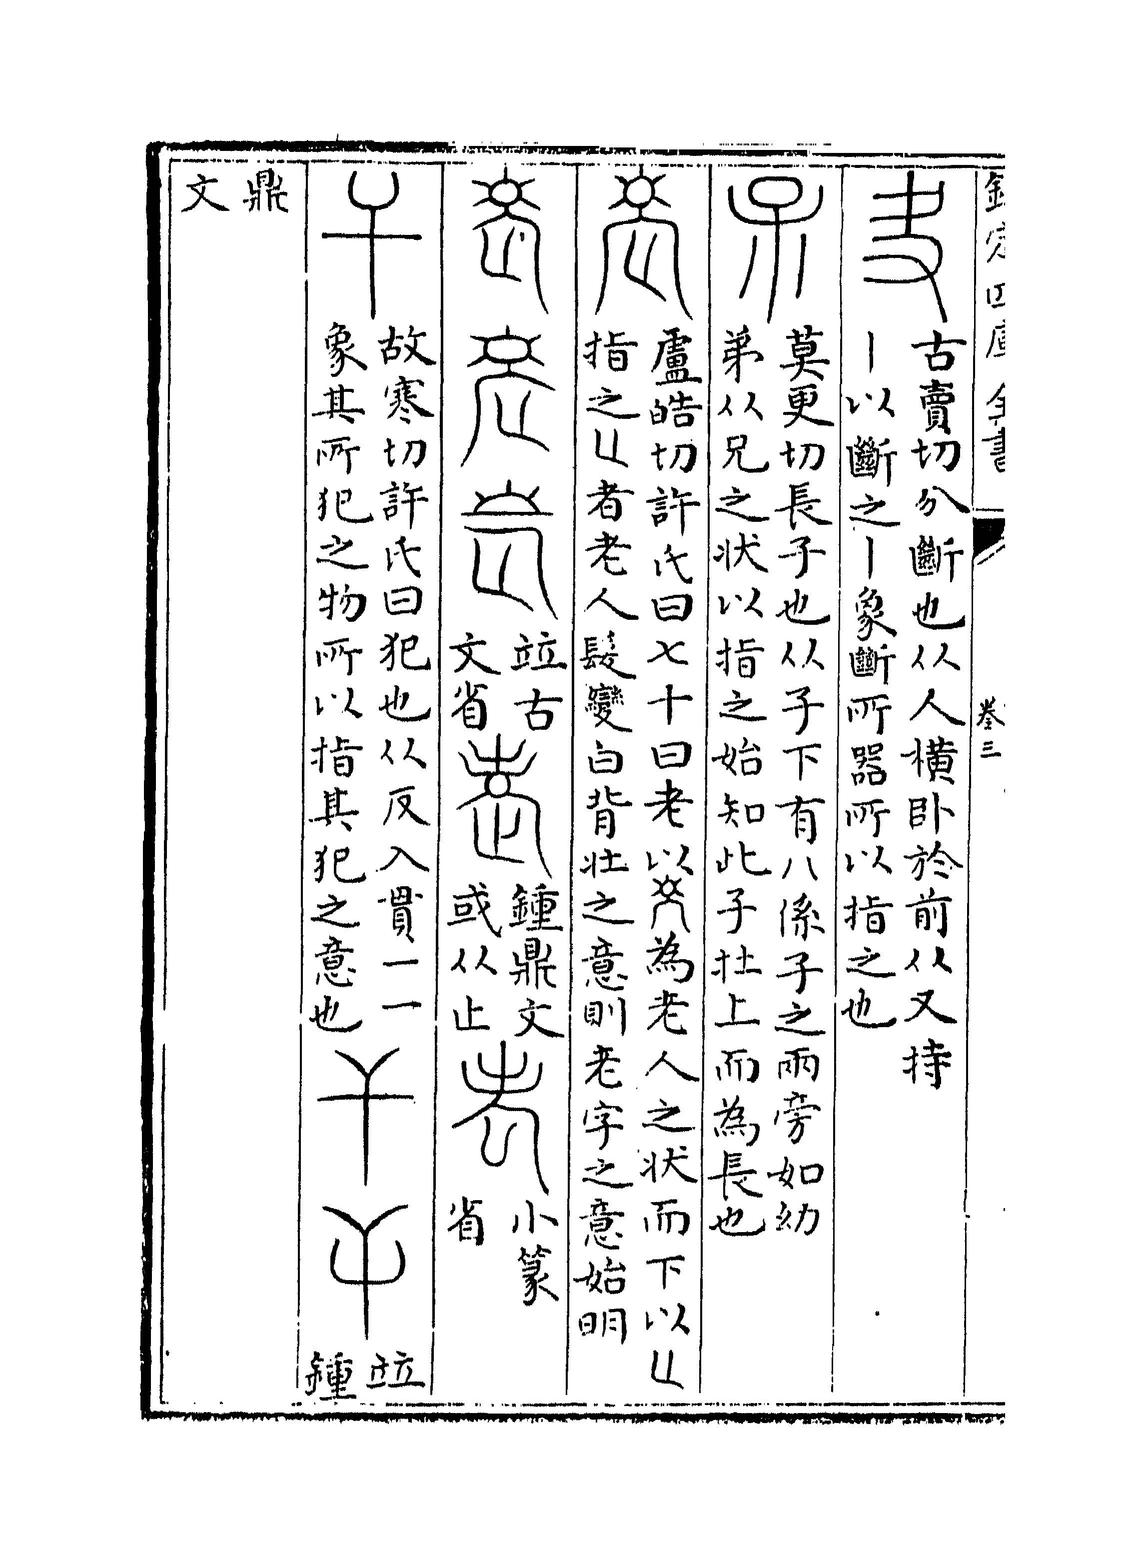 欽定四庫全書
卷三
古賣切分斷也从人橫卧於前从又持
丨以斷之丨象斷所器所以指之也
莫更切長子也从子下有八係子之兩旁如幼
弟从兄之状以指之始知此子在上而為長也
盧皓切許氏曰七十曰老以為老人之状而下以
指之者老人髮變白背壮之意則老字之意始明
竝古
文省
鍾鼎文
或从止
小篆
省
故寒切許氏曰犯也从反入貫一一
象其所犯之物所以指其犯之意也
竝
鍾
鼎
文